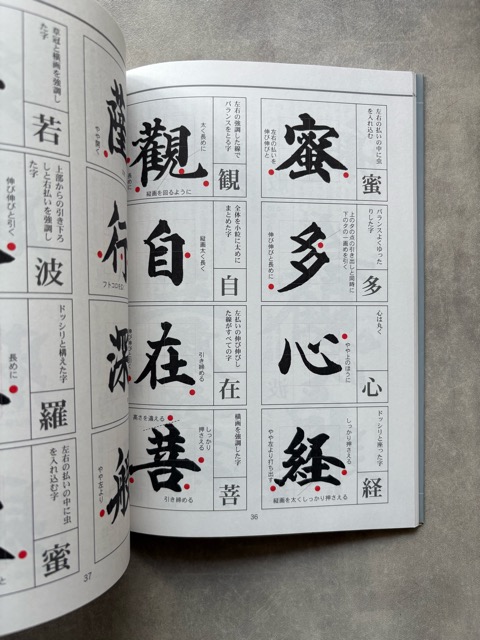 蜜
左右の払いの中に虫
を入れ込む
蜜
左右を
伸び伸びと
多
バランスよくゆった
りした字
多
上の夕の点の引き出しと同時に
下の夕の一画めを引く
伸び伸びと長めに
心
心は丸く
心
やや上のほうに
経
ドッシリと座った字
経
しっかり押さえる
やや左より打ち出す
縦画を太くしっかり押さえる
観
左右の強調した線で
バランスをとる字
観
太く長めに
長めに
縦画を回るように
自
全体を小粒に太めに
まとめた字
自
縦画太く長く
在
左払いの伸び伸びし
た線がすべての字
在
引き締める
菩
横画を強調した字
菩
長さを違える
しっかり
押さえる
引き締める
36
薩
草冠と横画を強調し
た字
若
やや開く
行
上部からの引き下ろ
しと右払いを強調し
た字
波
伸び伸びと引く
深
ドッシリと構えた字
羅
長めに
般
左右の払いの中に虫
を入れ込む字
蜜
やや左より
37